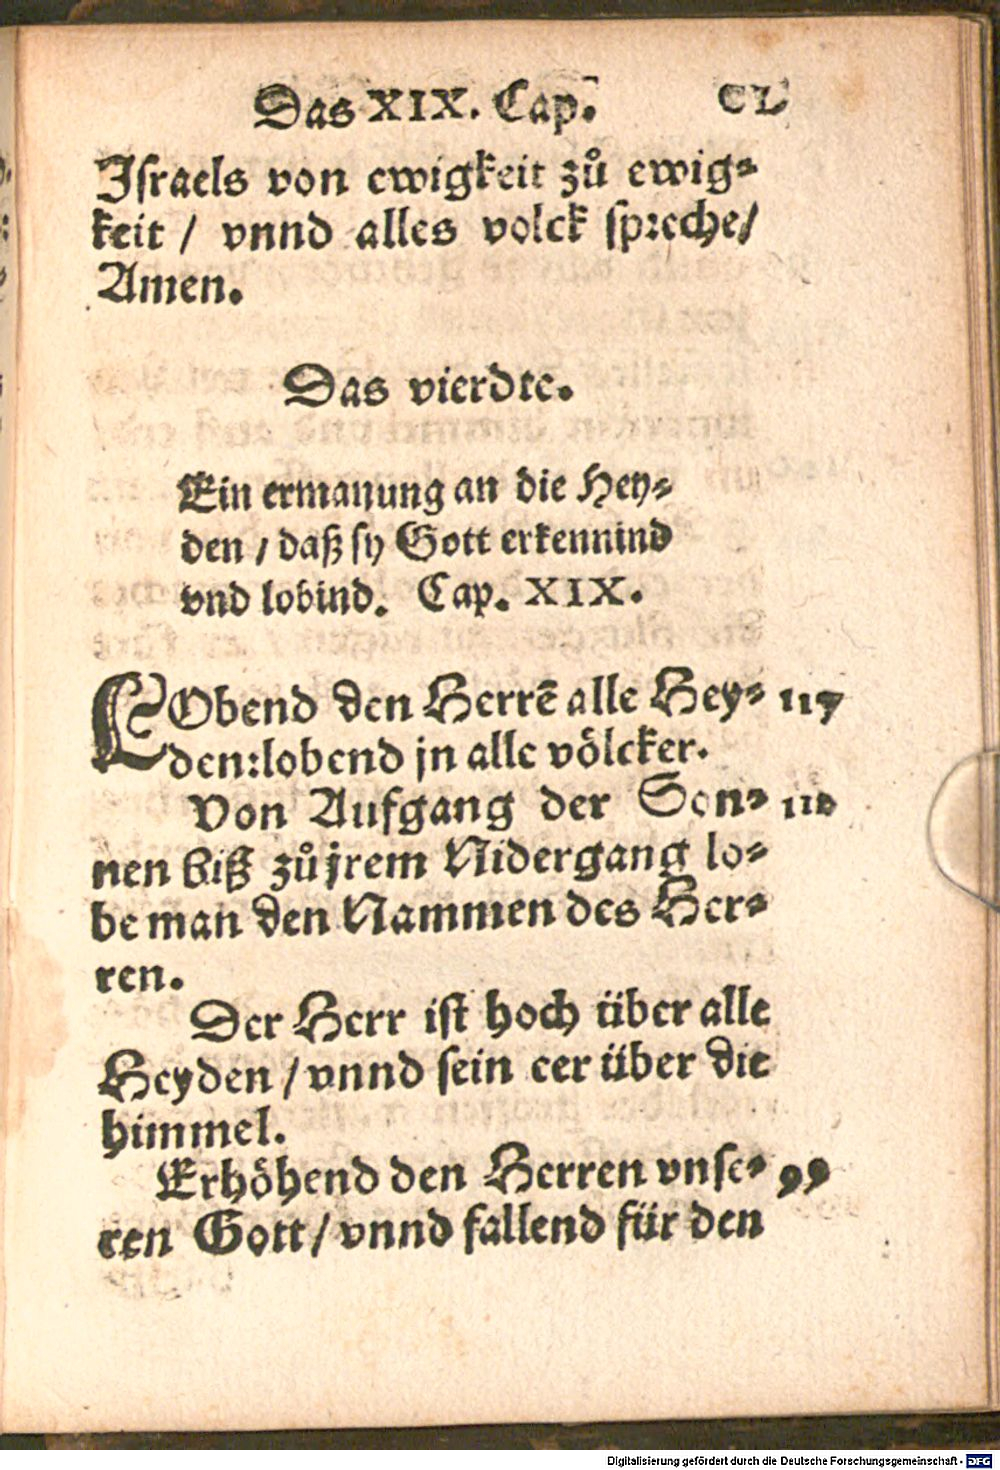 Das XIX. Cap. CL
Israels von ewigkeit zů ewig⸗
keit / vnnd alles volck spreche /
Amen.
Das vierdte.
Ein ermanung an die Hey⸗
den / daß sy Gott erkennind
vnd lobind. Cap. XIX.
LObend den Herrē alle Hey⸗ 117
den: lobend jn alle völcker.
Von Aufgang der Son⸗ 113
nen biß zů jrem Nidergang lo⸗
be man den Nammen des Her⸗
ren.
Der Herr ist hoch über alle
Heyden / vnnd sein eer über die
himmel.
Erhöhend den Herren vnse⸗ 99
ren Gott / vnnd fallend für den
Digitalisierung gefördert durch die Deutsche Forschungsgemeinschaft - DFG